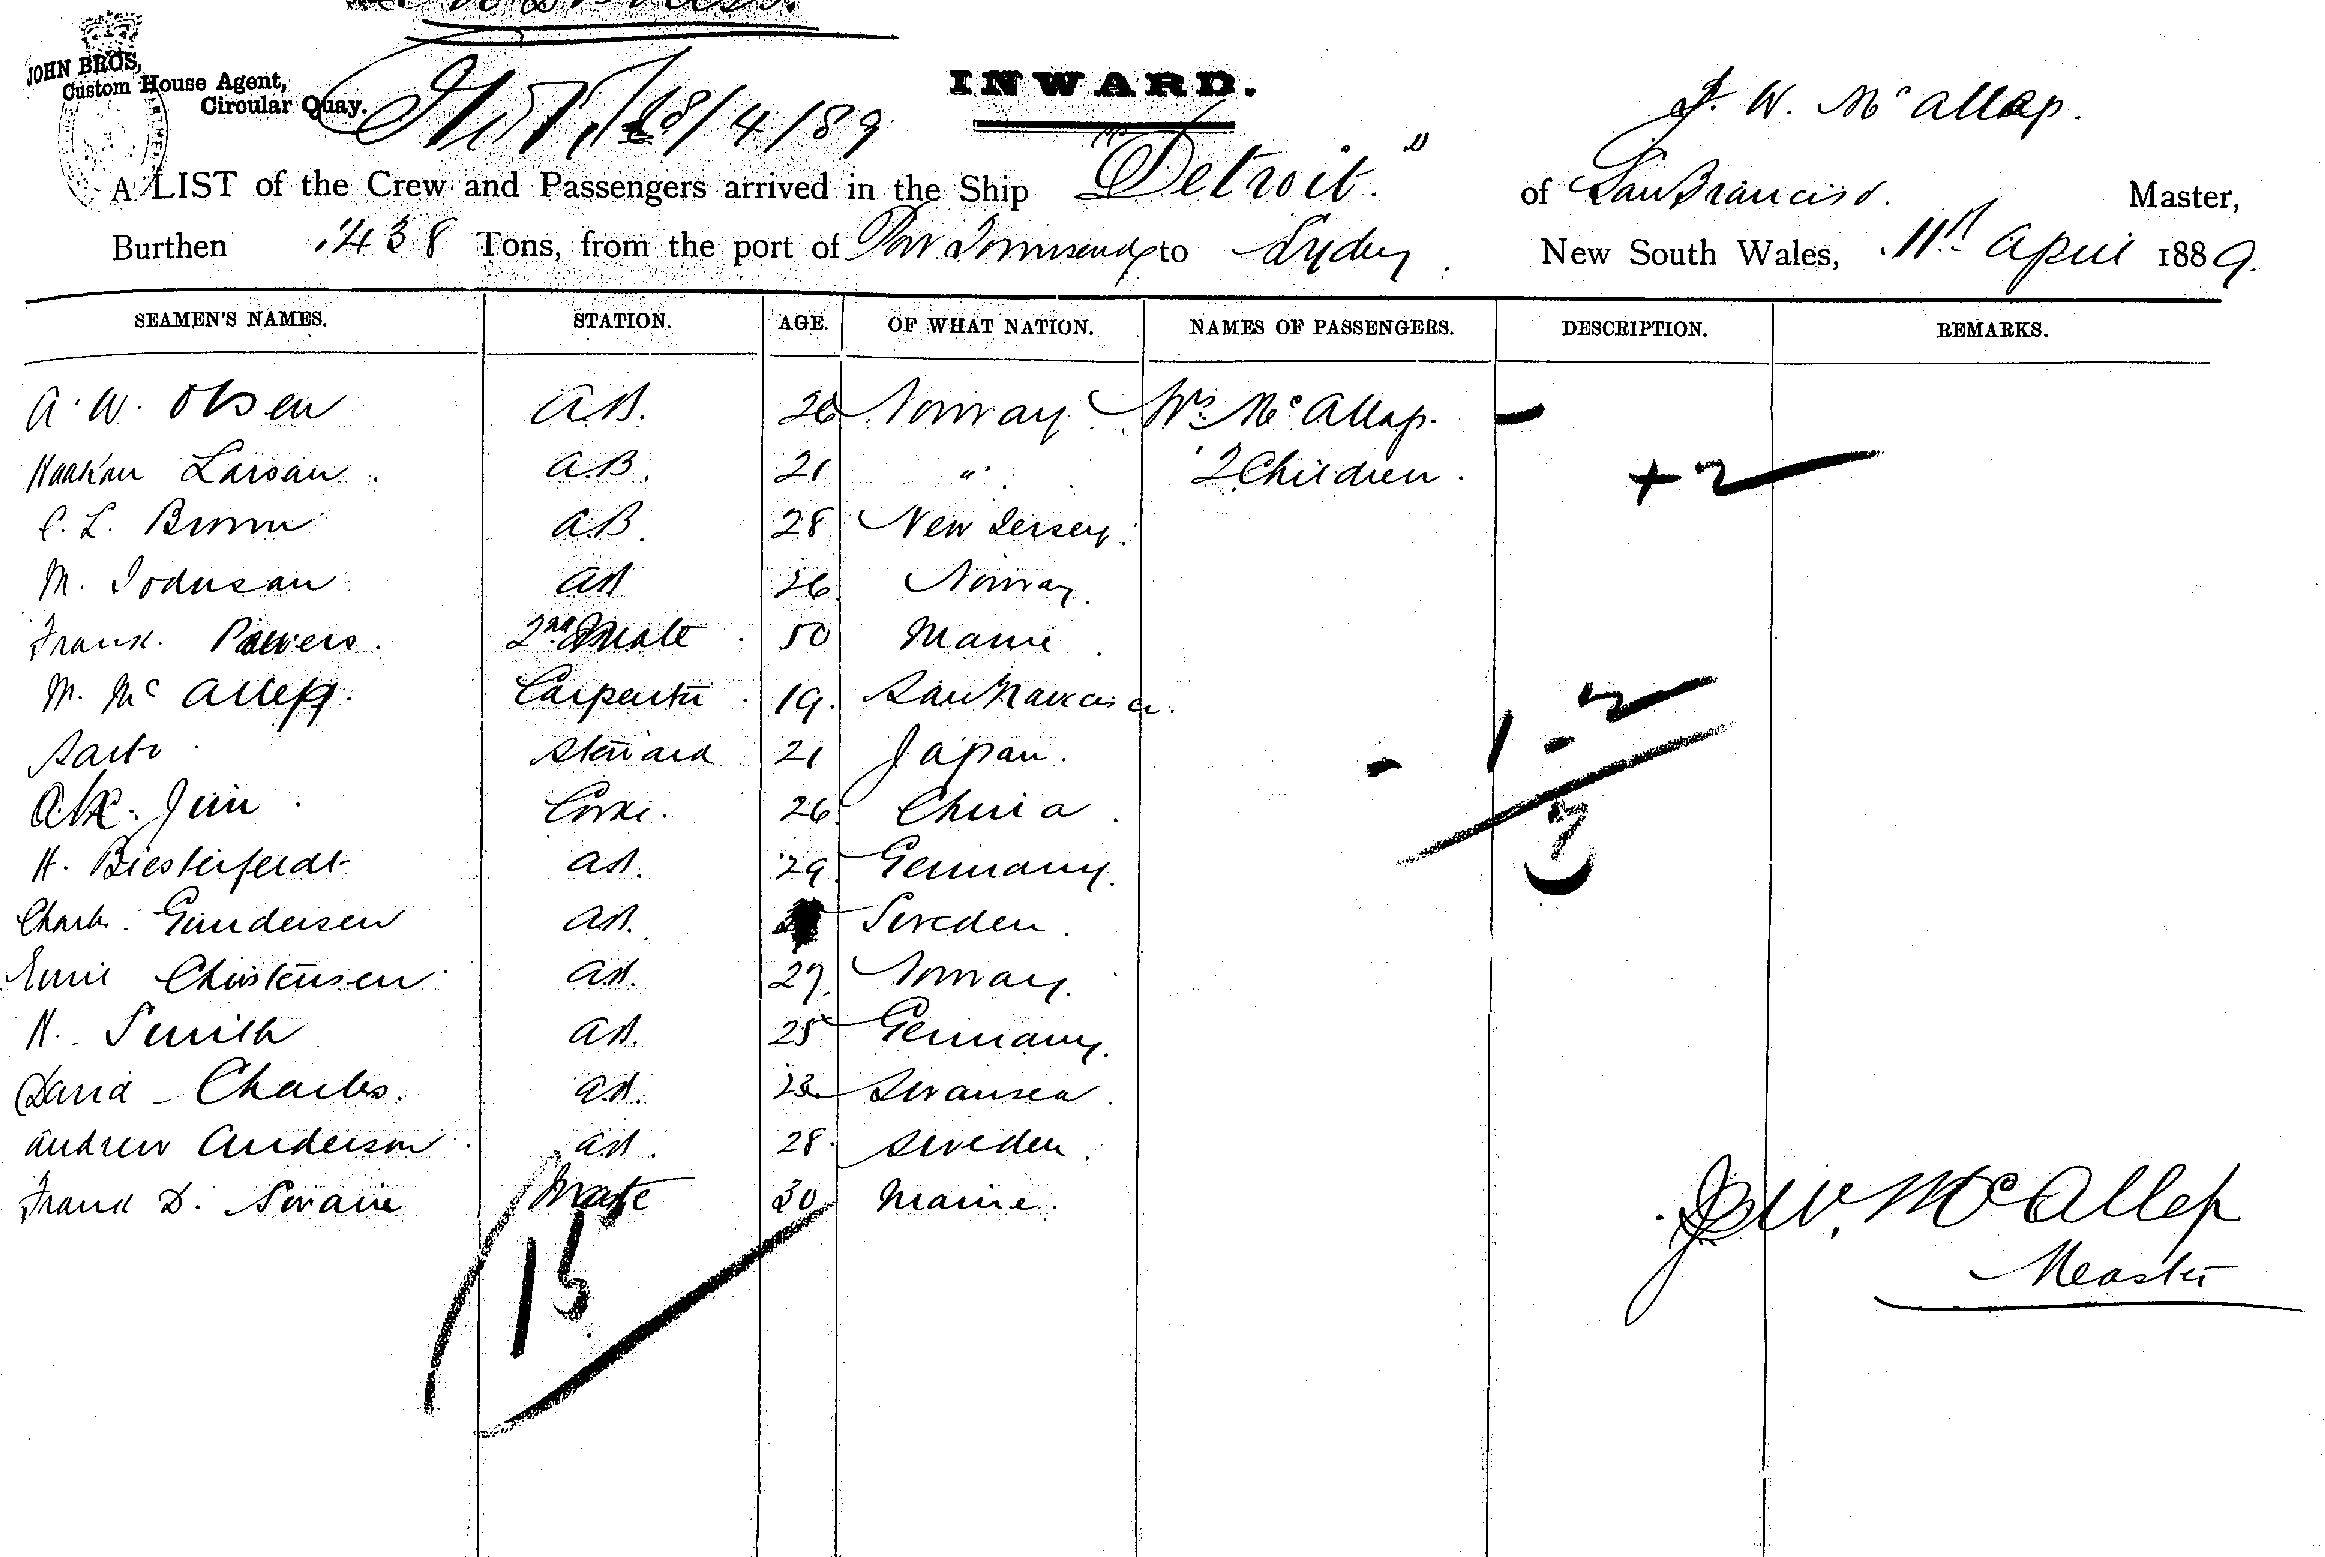 JOHN BROS,
Custom House Agent,
Circular Quay.
18/4/89
INWARD.
J. W. McAllep.
A LIST of the Crew and Passengers arrived in the Ship "Detroit" of San Francisco. Master,
Burthen 438 Tons, from the port of Port Townsend to Sydney. New South Wales, 11th April 1889.
SEAMEN'S NAMES. STATION. AGE. OF WHAT NATION. NAMES OF PASSENGERS. DESCRIPTION. REMARKS.
A. W. Olsen A.B. 26 Norway Mrs. McAllap. -
Haakan Larsan. A.B. 21 " 2 Children. + 2
C. L. Brown A.B. 28 New Jersey.
M. AB 26 Norway.
Frank. Powers. 2nd Mate 50 Maine
M. McAllep. Carpenter 19. San Francisco.
Saito Steward 21 Japan.
Jim Cook. 26 China
H. Biesterfeldt AB. 29 Germany.
- 1 - 2
3
Charls. Gundersen AB. Sweden.
Emil Christensen AB. 27. Norway.
H. Smith AB. 25 Germany.
David - Charles. AB. 23 Swansea.
Andrew Anderson AB. 28. Sweden.
Frank D. Swaine Mate 30 Maine.
15
J. W. McAllep
Master